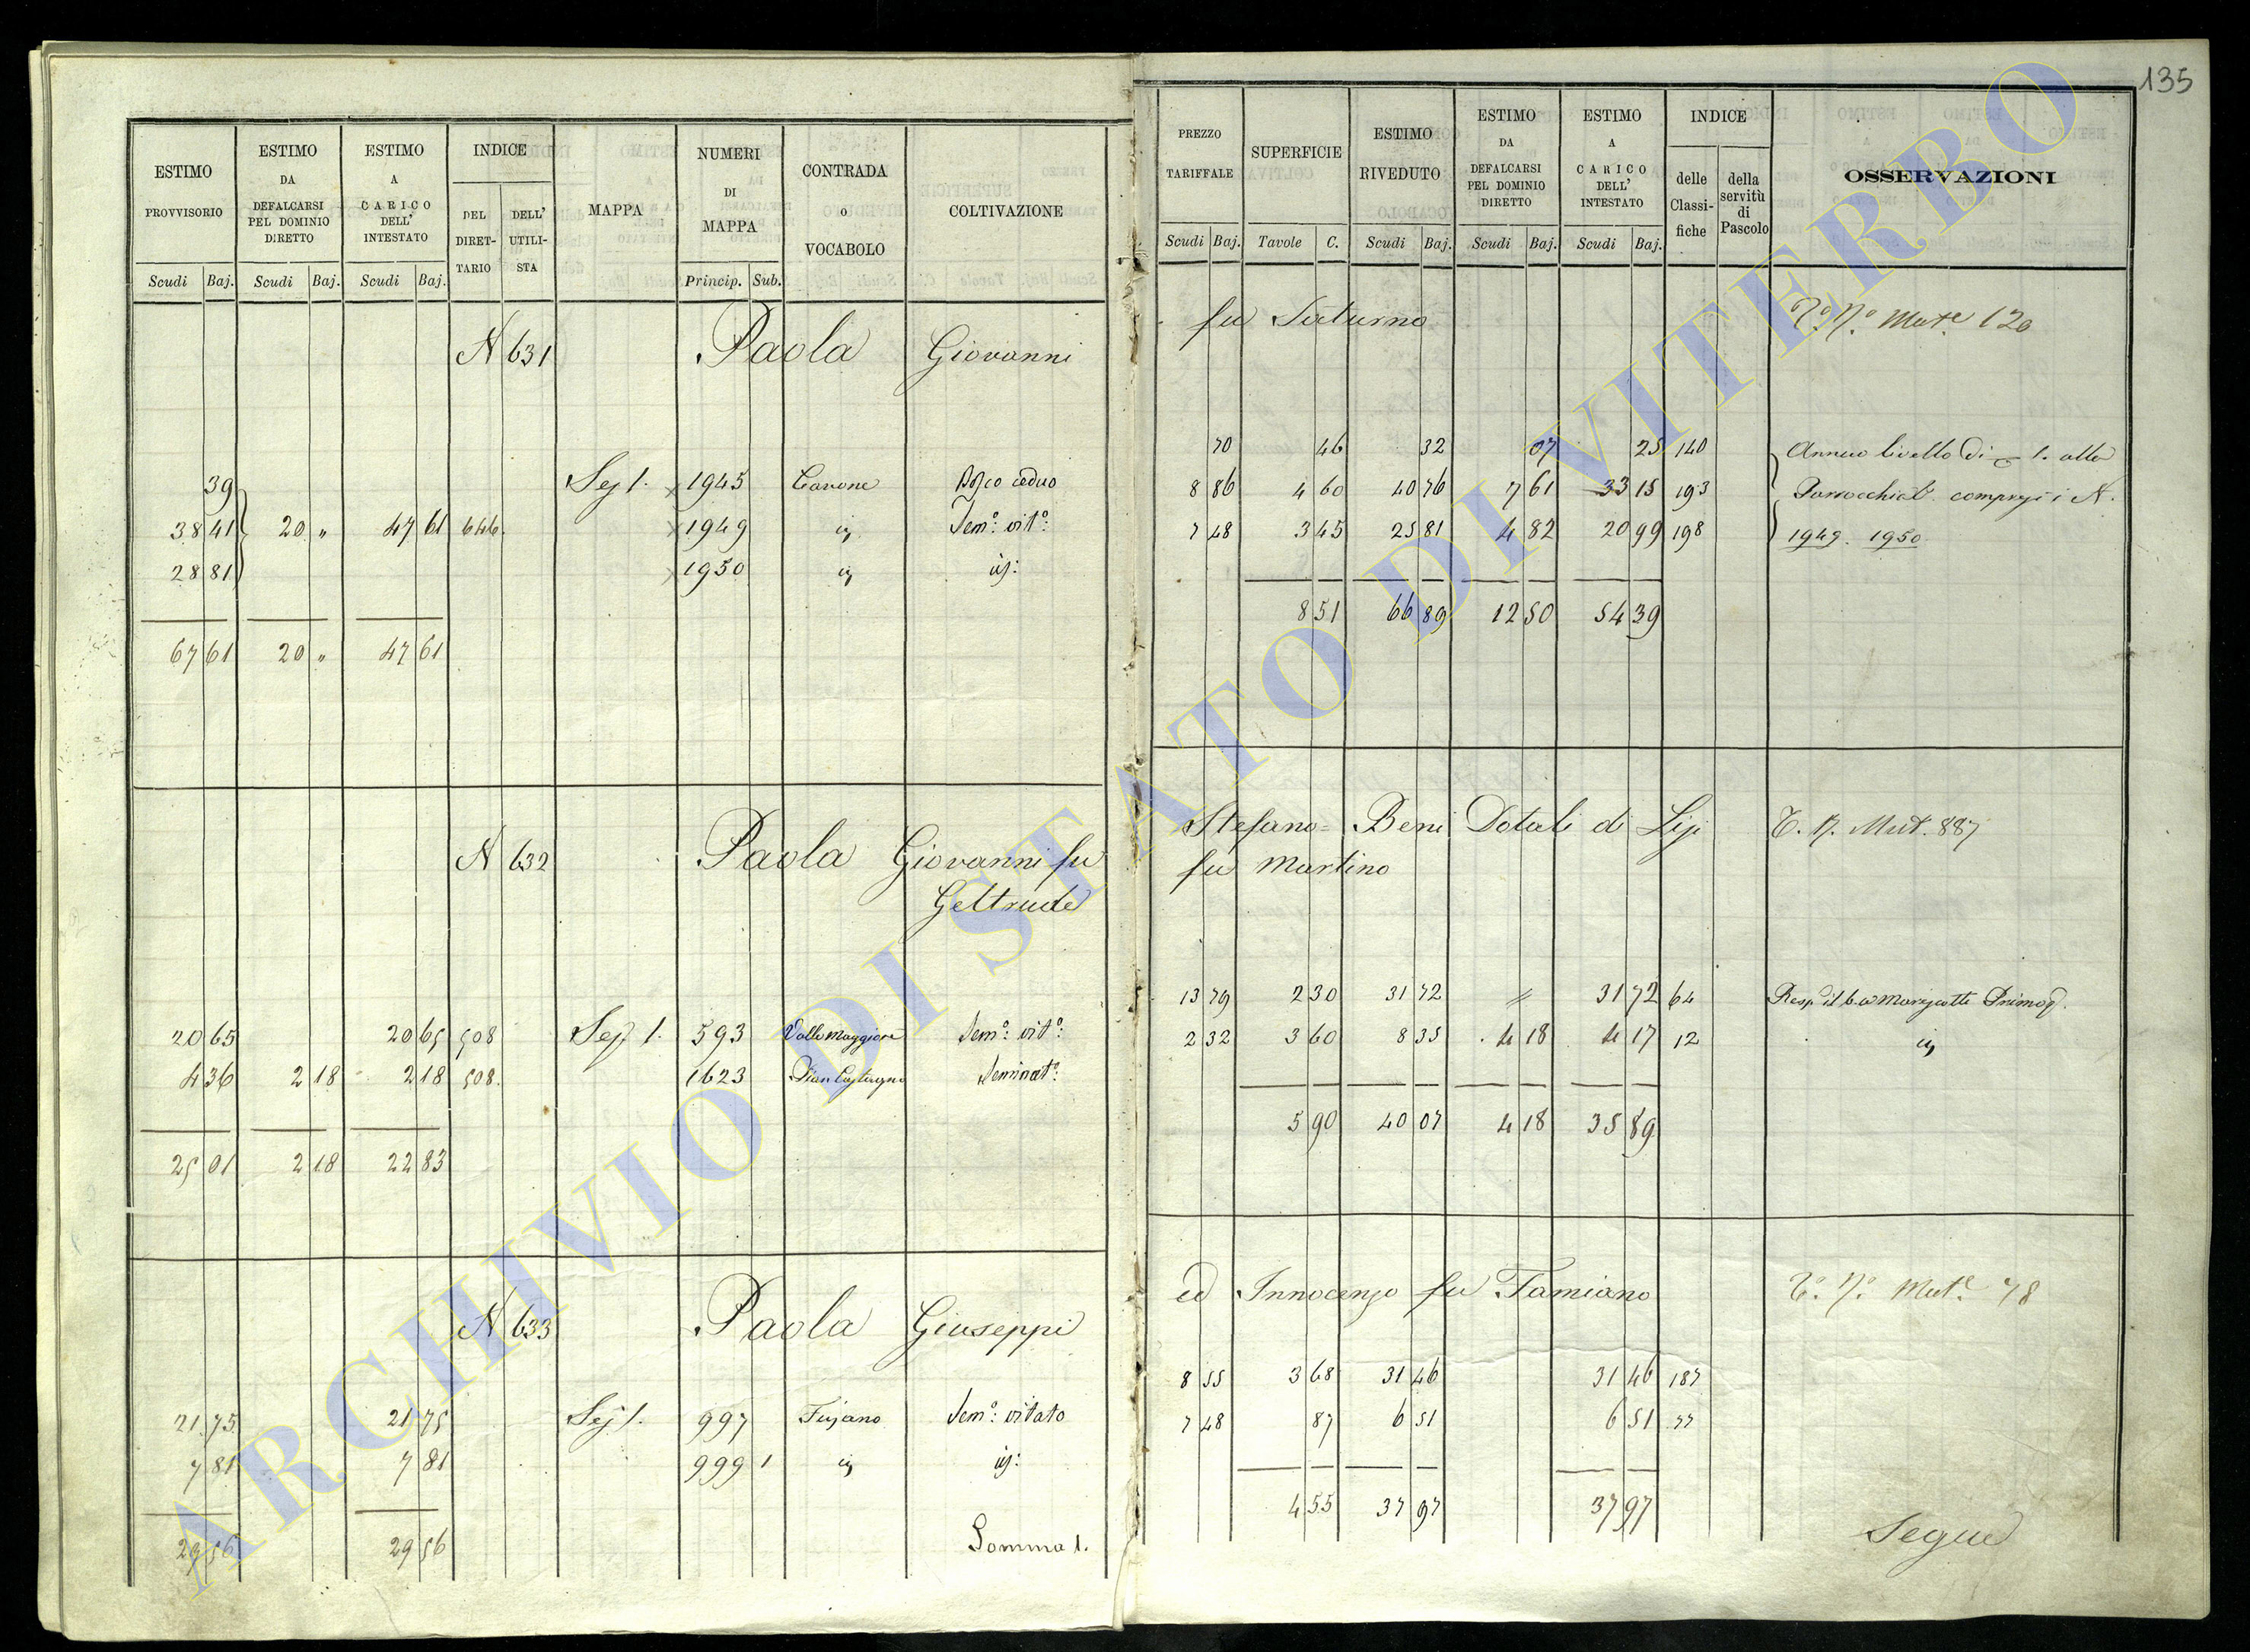 135
ESTIMO PROVVISORIO
ESTIMO DA DEFALCARSI PEL DOMINIO DIRETTO
ESTIMO A CARICO DELL' INTESTATO
INDICE
DEL DIRET-TARIO
DELL' UTILI-STA
MAPPA
NUMERI DI MAPPA
CONTRADA o VOCABOLO
COLTIVAZIONE
Scudi Baj. Scudi Baj. Scudi Baj. Princip. Sub.
PREZZO TARIFFALE
SUPERFICIE
ESTIMO RIVEDUTO
ESTIMO DA DEFALCARSI PEL DOMINIO DIRETTO
ESTIMO A CARICO DELL' INTESTATO
INDICE
delle Classi-fiche
della servitù di Pascolo
OSSERVAZIONI
Scudi Baj. Tavole C. Scudi Baj. Scudi Baj. Scudi Baj.
N 631 Paola Giovanni fu Saturno
Mut.e 120
39 Sez 1. 1945 Cavone Bosco ceduo 70 46 32 07 25 140
38 41 20 " 47 61 646. 1949 Sem.o: vit.o: 8 86 4 60 40 76 7 61 33 15 193
28 81 1950 7 48 3 45 25 81 4 82 20 99 198
Annuo livello di 1. alla
Parrocchial. compresi i N.
1949. 1950
8 51 66 89 12 50 54 39
67 61 20 " 47 61
N 632 Paola Giovanni fu Stefano = Beni Dotali di
Geltrude fu Martino
Mut. 887
20 65 20 65 508 Sez. 1. 593 Valle Maggiore Sem.o: vit.o: 13 79 2 30 31 72 " 31 72 64
4 36 2 18 2 18 508. 1623 Pian Castagno Seminat.o: 2 32 3 60 8 35 4 18 4 17 12
5 90 40 07 4 18 35 89
25 01 2 18 22 83
N 633 Paola Giuseppi ed Innocenzo fu Famiano
Mut.e 78
21 75 21 75 Sez 1. 997 Fusano Sem.o: vitato 8 55 3 68 31 46 31 46 187
7 81 7 81 999 1 7 48 87 6 51 6 51 77
4 55 37 97 37 97
29 56 29 56 Somma 1.
Segue
ARCHIVIO DI STATO DI VITERBO